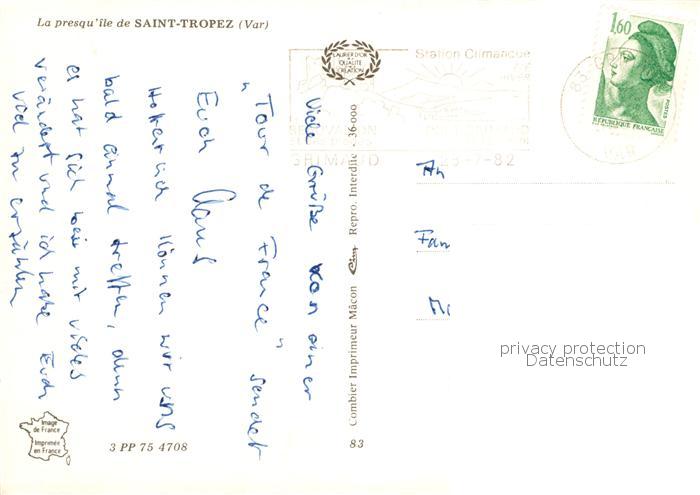 La presqu'île de SAINT-TROPEZ (Var)
LAURIER D'OR
QUALITÉ
CRÉATION
Station Climatique
GRIMAUD
25-7-82
1,60
POSTES
REPUBLIQUE FRANÇAISE
VAR
Viele Grüße von einer
"Tour de France" sendet
Euch Claus
Hoffentlich können wir uns
bald einmal treffen, denn
es hat sich bei mir vieles
verändert und ich habe Euch
viel zu erzählen
Combier Imprimeur Mâcon Cim Repro. Interdite - 36-000
An
Fam
privacy protection
Datenschutz
Image
de France
Imprimée
en France
3 PP 75 4708
83